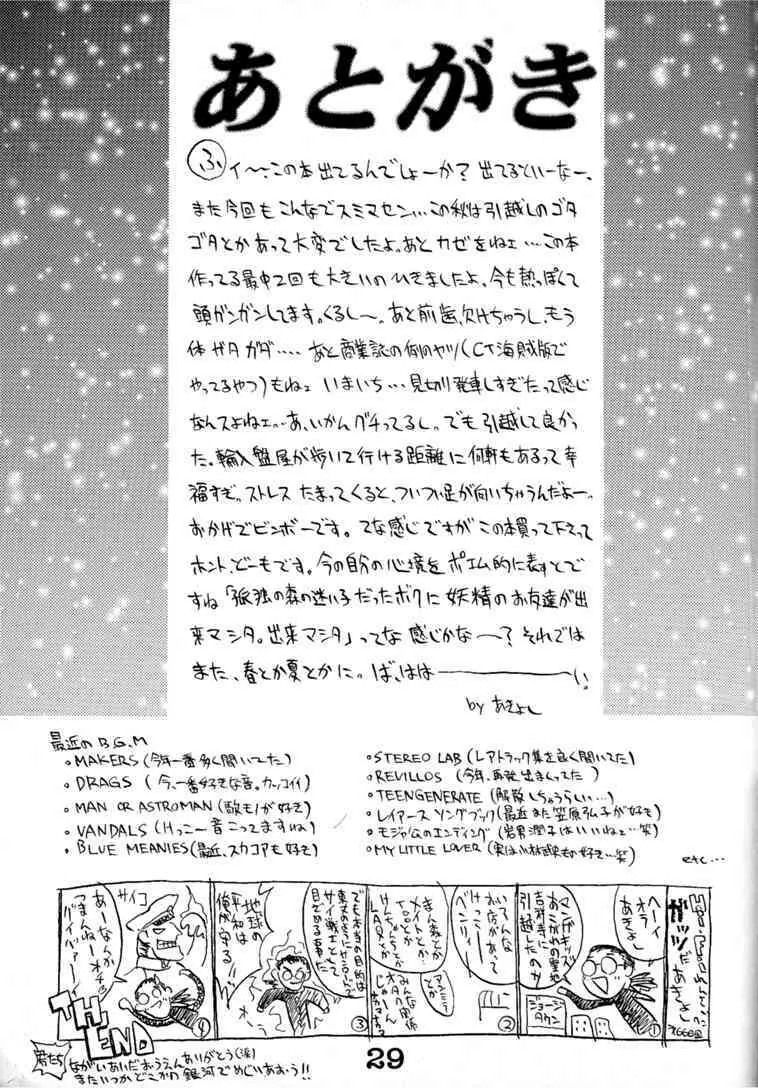 あとがき
ふィ～、この本出てるんでしょーか?出てるといーなー、
また今回もこんなでスミマセン…この秋は引越しのゴタ
ゴタとかあって大変でしたよ。あとカゼをねェ…この本
作ってる最中2回も大きいのひきましたよ、今も熱っぽくて
頭ガンガンしてます。くるし～。あと前歯欠けちゃうし、もう
体ガタガタ‥‥あと商業誌の例のヤツ(CT海賊版で
やってるやつ)もねェいまいち…見切り発車しすぎたって感じ
なんスよねェ…あ、いかんグチってるし。でも引越して良かっ
た。輸入盤屋が歩いて行ける距離に何軒もあるって幸
福すぎ。ストレスたまってくると、ついつい足が向いちゃうんだよー。
おかげでビンボーです。てな感じですがこの本買って下さって
ホントどーもです。今の自分の心境をポエム的に表すとで
すね「孤独の森の迷い子だったボクに妖精のお友達が出
来マシタ。出来マシタ」ってな感じかな～?それでは
また、春とか夏とかに。ば、はは――――い。
by あきよし
最近のB.G.M
。MAKERS(今年一番多く聞いてた)
。DRAGS(今、一番好きな音。カッコイイ)
。MAN OR ASTROMAN(敵モノが好き)
。VANDALS(けっこー音こってますね)
。BLUE MEANIES(最近、スカコアも好き)
。STEREO LAB(レアトラック集を良く聞いてた)
。REVILLOS(今年、再発出まくってた)
。TEENGENERATE(解散しちゃうらしい…)
。レイアースソングブック(最近また笠原弘子が好き)
。モジャ公のエンディング(岩男潤子はいいねェ…笑)
。MY LITTLE LOVER(実は小林武史も好き…笑)
etc…
ガッツだあきよし
ヘーイ
オラ
あきよし
マンガキッズ
あこがれの聖地
吉祥寺に
引越したのダ
ジョージ
タウン
①
いろんな
お店があって
けっこー
ベンリィ
まんが家とか
メイトとか
②
でも本当の目的は
サイ戦士として
目ざめる事だ
地球の
平和は
俺が守る!!
③
サイコ
あーなんか
つまんねーオチ
④
TH END
君たち
ながいあいだおうえんありがとう(涙)
またいつかどこかの銀河でめぐりあおう!!
29